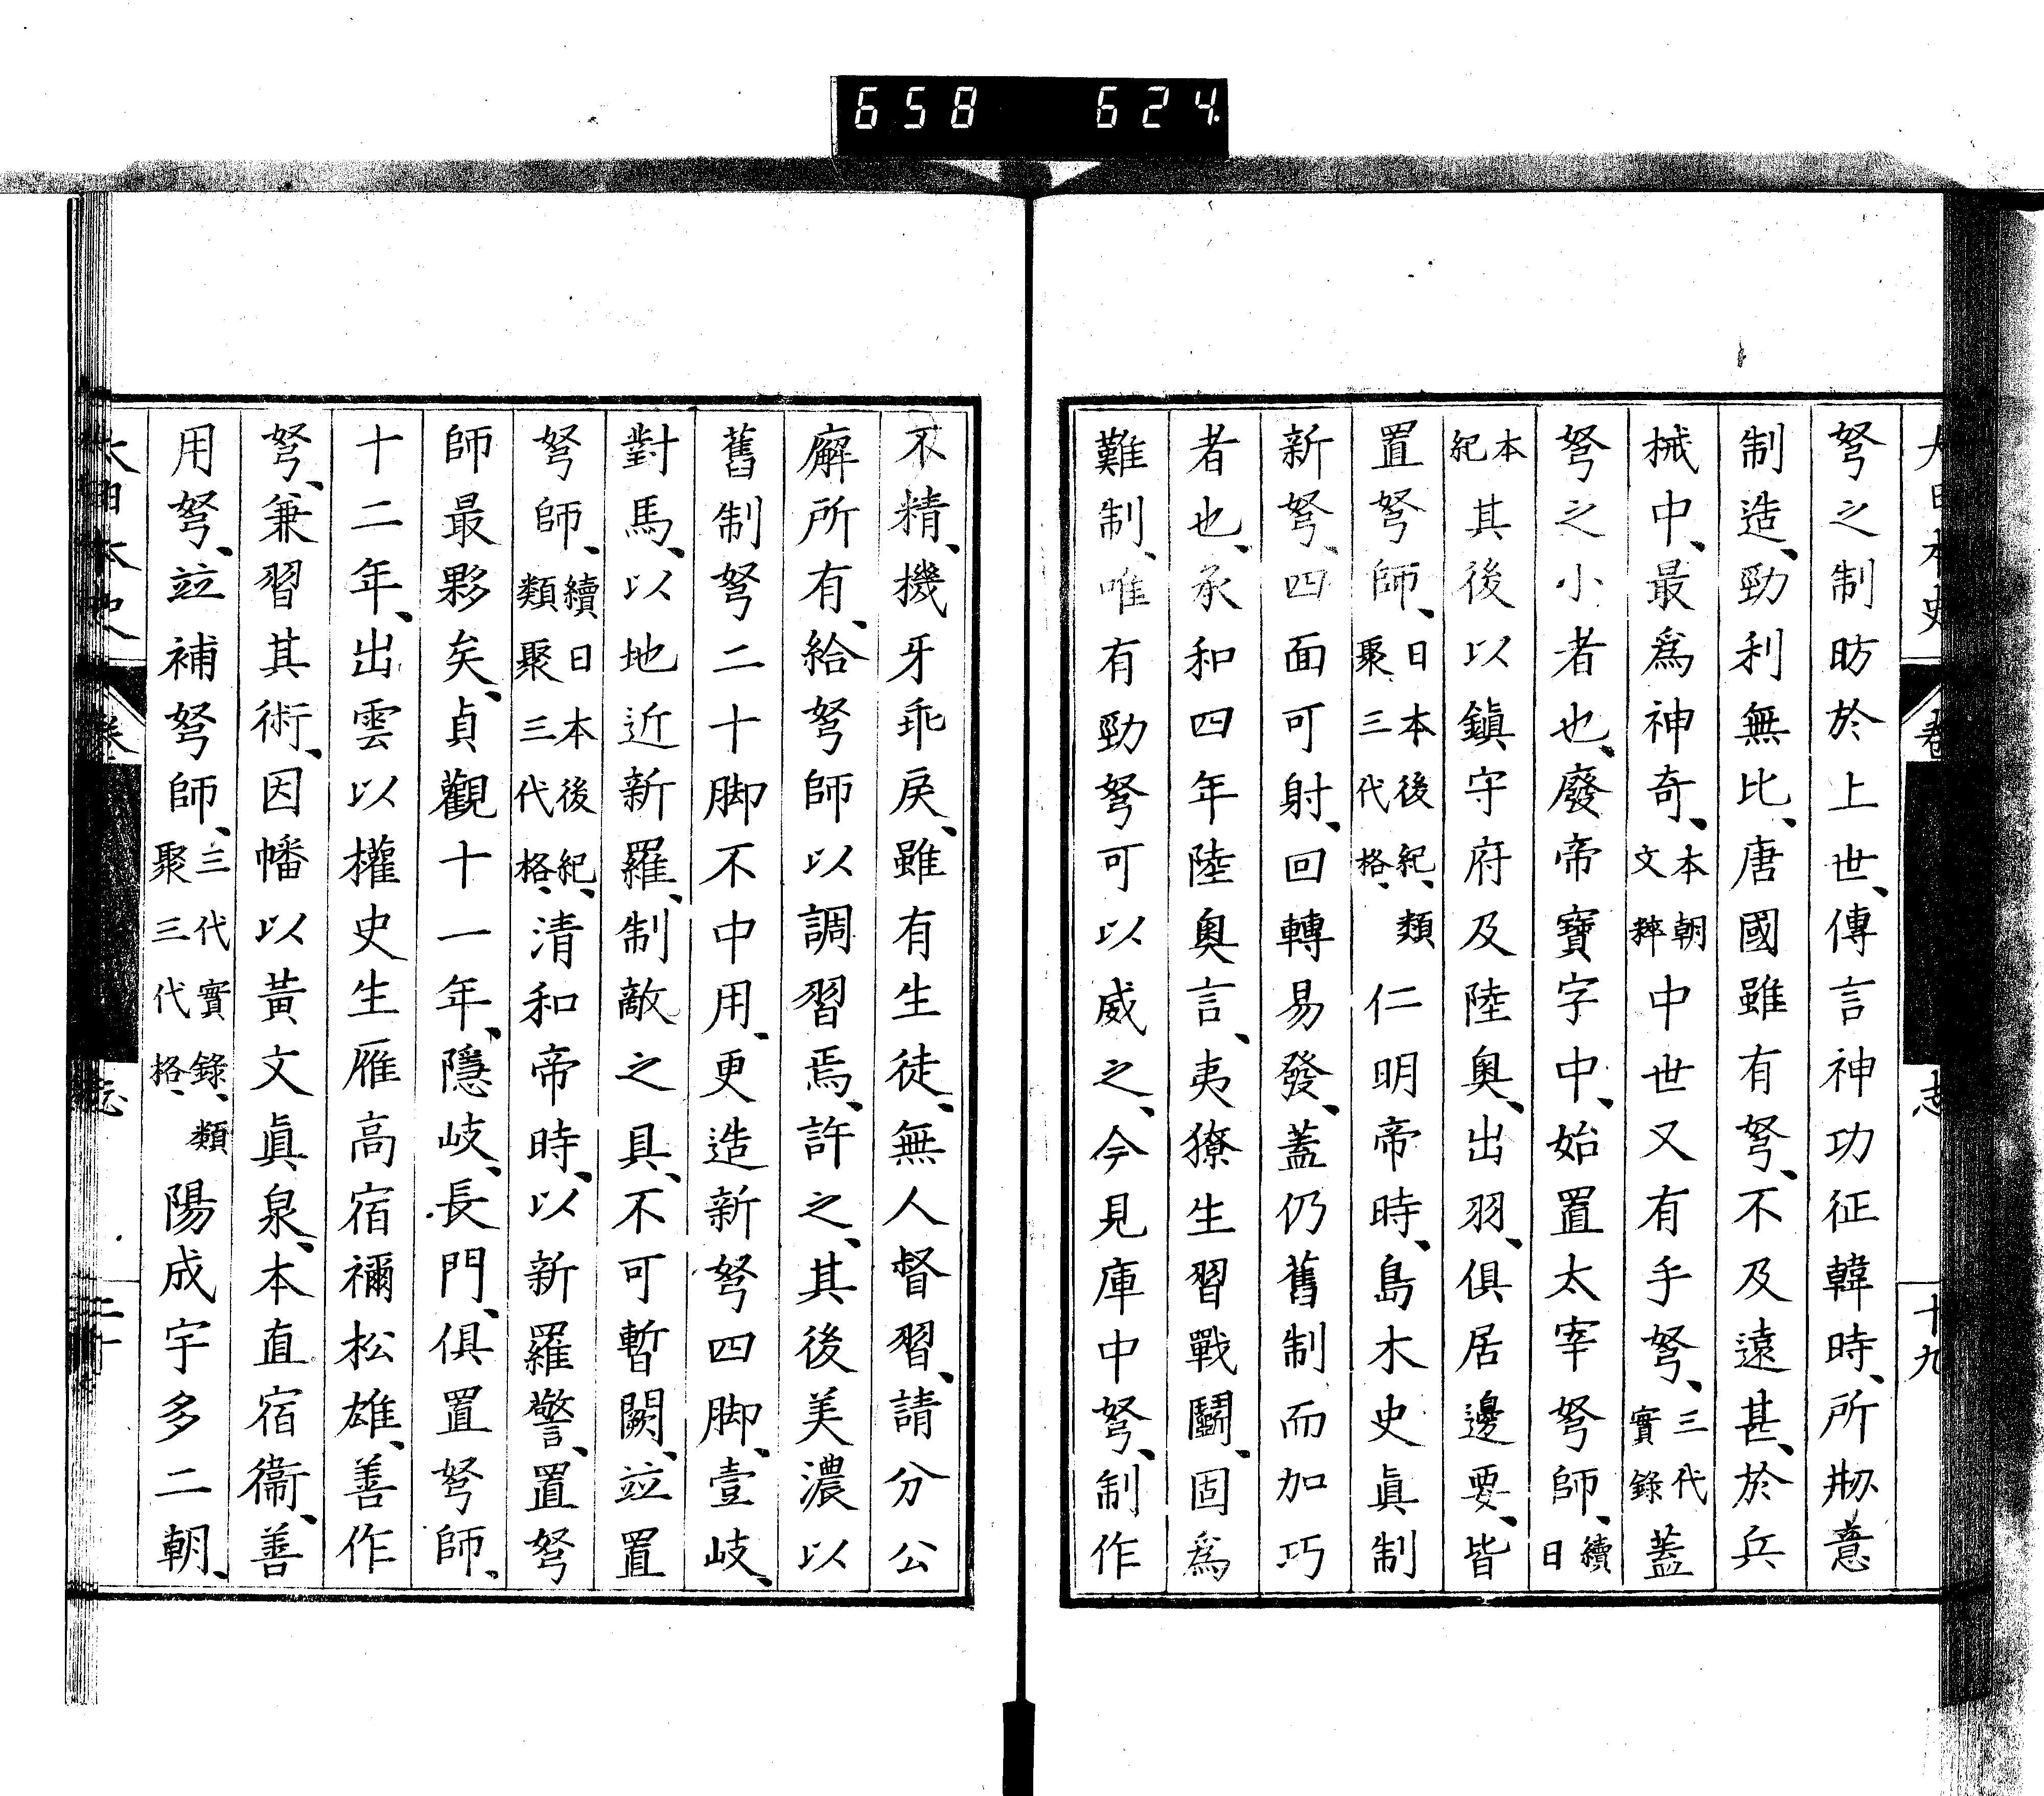 658 624
大日本史 志 十九
弩之制昉於上世、傳言神功征韓時、所刱意
制造、勁利無比、唐國雖有弩、不及遠甚、於兵
械中、最爲神奇、本朝文粹中世又有手弩、三代實錄蓋
弩之小者也、廢帝寶字中、始置太宰弩師、續日
本紀其後以鎭守府及陸奧、出羽、俱居邊要、皆
置弩師、日本後紀、類聚三代格、仁明帝時、島木史眞制
新弩、四面可射、回轉易發、蓋仍舊制而加巧
者也、承和四年陸奧言、夷獠生習戰鬪、固爲
難制、唯有勁弩可以威之、今見庫中弩、制作
不精、機牙乖戾、雖有生徒、無人督習、請分公
廨所有、給弩師以調習焉、許之、其後美濃以
舊制弩二十脚不中用、更造新弩四脚、壹岐、
對馬、以地近新羅、制敵之具、不可暫闕、竝置
弩師、續日本後紀、類聚三代格、清和帝時、以新羅警、置弩
師最夥矣、貞觀十一年、隱岐、長門、俱置弩師、
十二年、出雲以權史生雁高宿禰松雄、善作
弩、兼習其術、因幡以黃文眞泉、本直宿衞、善
用弩、竝補弩師、三代實錄、類聚三代格、陽成宇多二朝、
大日本史 卷 志 二十